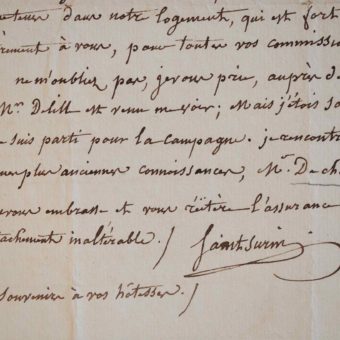 dans notre logement, qui est fort
èrement à vous, pour toutes vos commissio
ne m'oubliez pas, je vous prie, auprès d
Mr. Dlill est venu me voir; Mais j'étois so
e suis parti pour la Campagne. je rencontr
plus anciennes connoissances, Mr. De ch
vous embrasse et vous réïtère l'assurance
tachement inaltérable. / Saintsurin
souvenirs à vos hôtesses. /